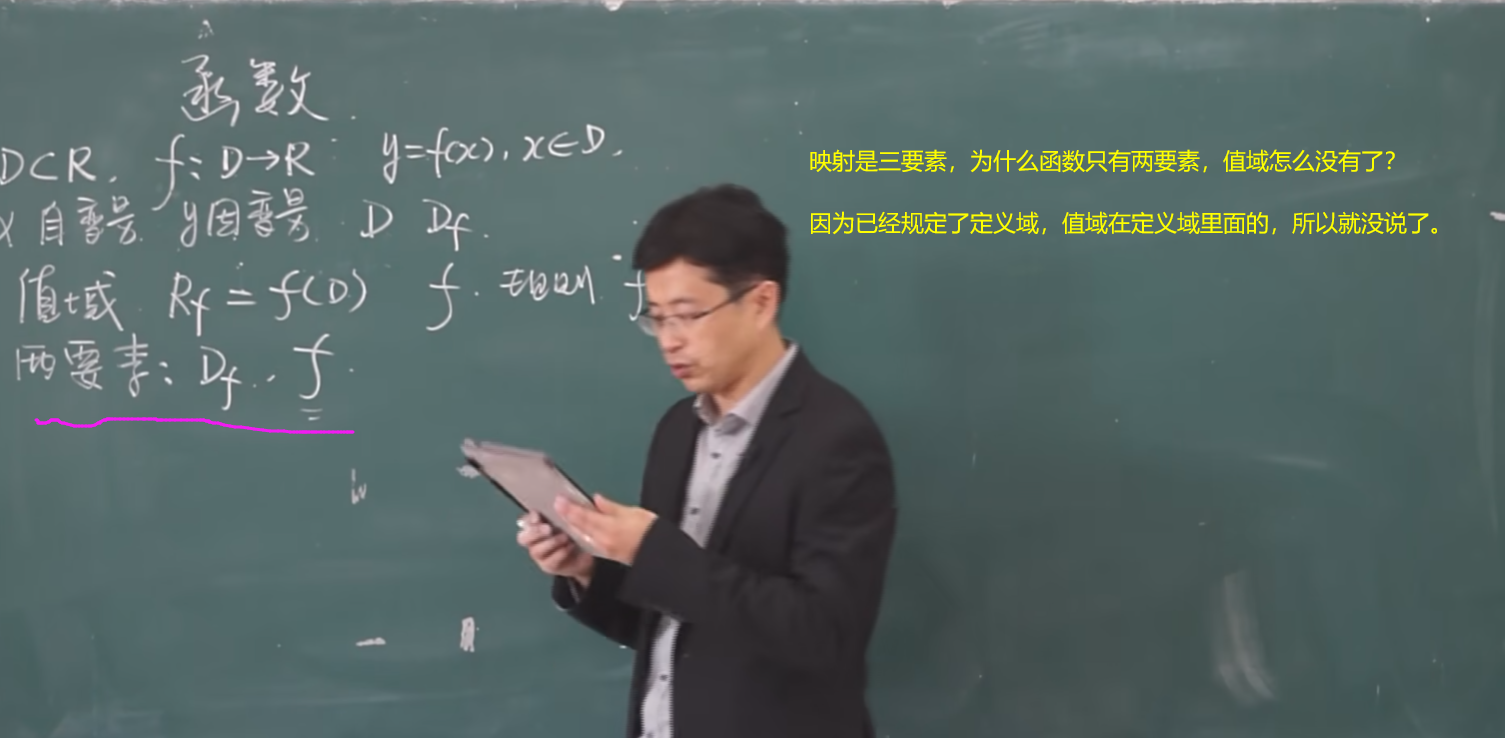 函数.
D⊂R, f: D→R y=f(x), x∈D.
x 自变量 y因变量 D Df.
值域 Rf = f(D) f. f
两要素: Df, f.
映射是三要素，为什么函数只有两要素，值域怎么没有了？
因为已经规定了定义域，值域在定义域里面的，所以就没说了。